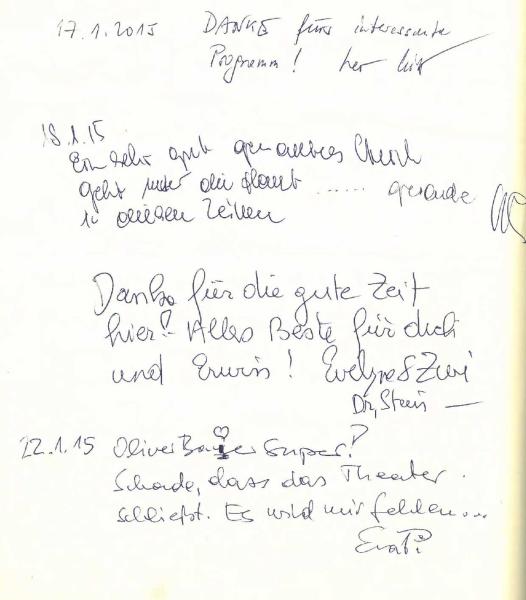 17.1.2015 DANKE fürs interessante
Programm!
18.1.15
Ein sehr gut gemachtes Stück
geht unter die Haut ...... gerade
in diesen Zeiten
Danke für die gute Zeit
hier! Alles Beste für dich
und Erwin! Evelyne & Zwi
22.1.15 Oliver Baier Super!
Schade, dass das Theater
schließt. Es wird mir fehlen...